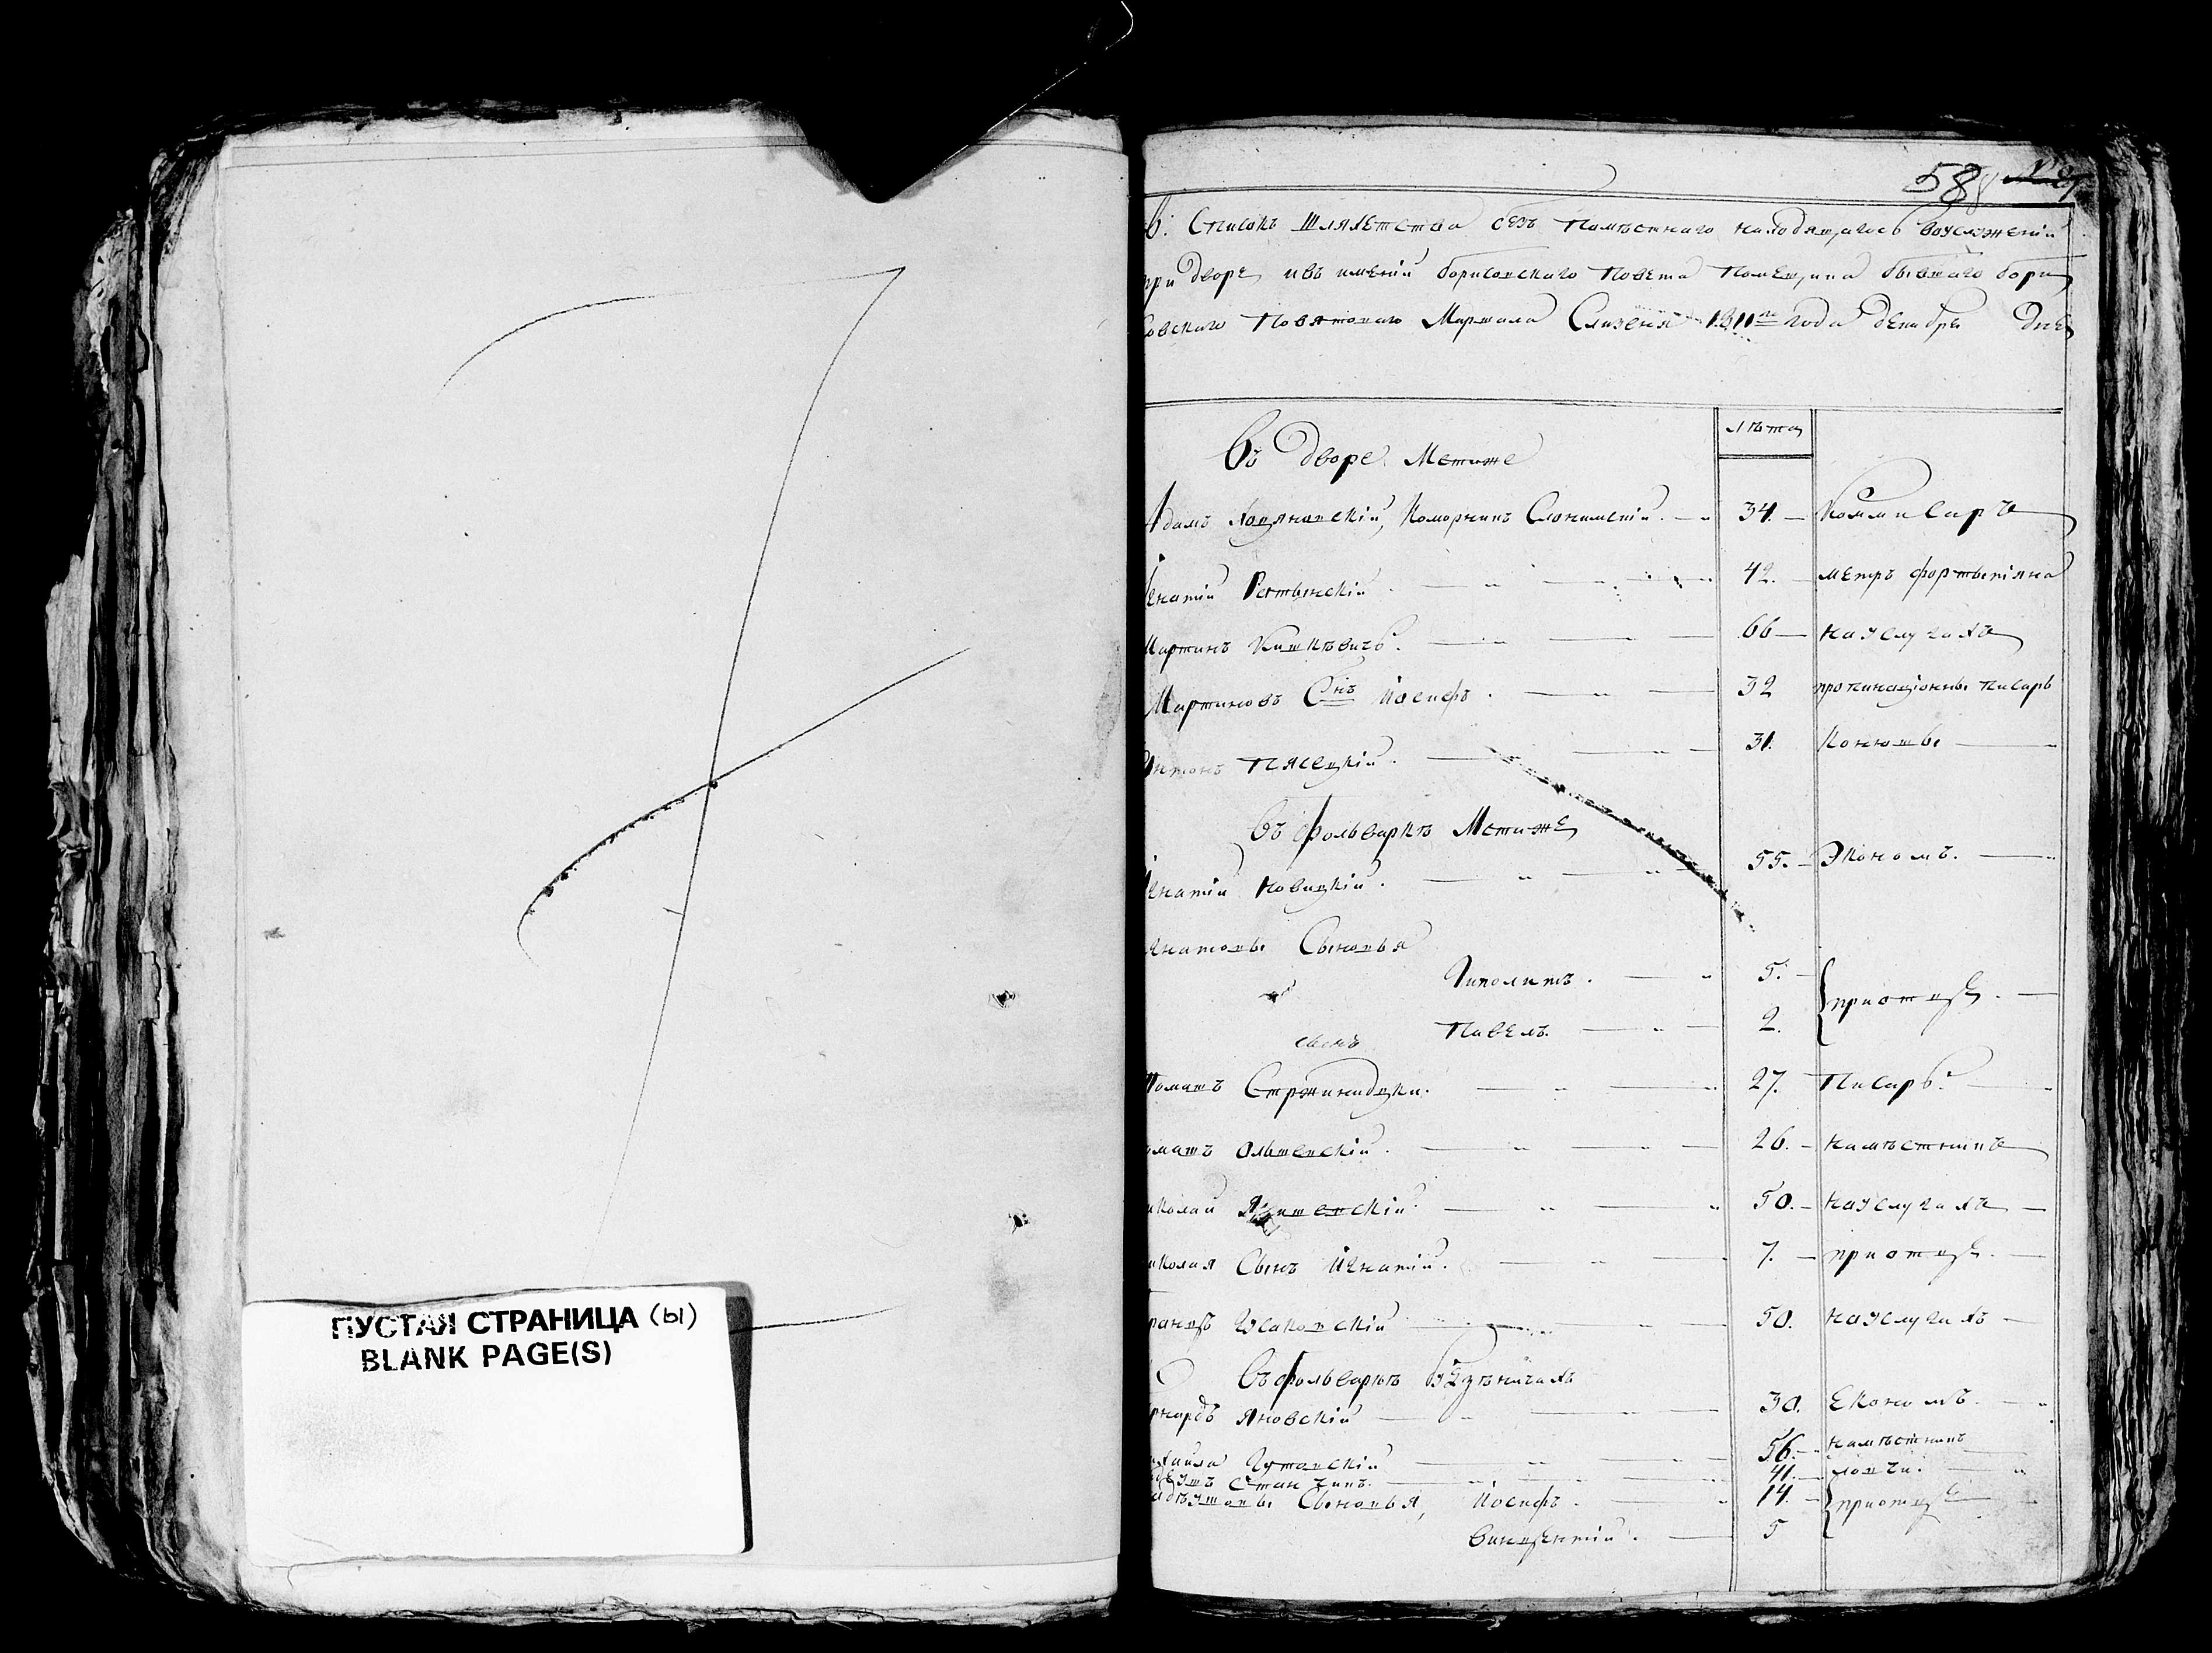 ПУСТАЯ СТРАНИЦА (ы)
BLANK PAGE(S)
588
Списокъ Шляхетства безъ Поместнаго находящагось воуслужении
при дворе ивъ имении борисовскаго Повета Помещика бывшаго бори
совскаго Поветоваго Маршала Слизеня 1811го года декабря дня
Лета
Въ дворе Мстиже
Адамъ Коморникъ Слонимский. 34. Коммисаръ
Игнатий 42. метръ фортепияна
Мартинъ Кишкевичъ. 66 наУслугахъ
Мартиновъ Снъ Иосифъ. 32 пропинационны писарь
Антонъ Пясецкий. 31. Конюшы
Въ фольварке Мстиже
Игнатий Новицкий. 55. Экономъ.
Сыновья
Гиполитъ. 5. приотце.
сынъ Павелъ. 2.
Томашъ 27. Писарь.
Томашъ Ольшевский. 26. наместникъ
иколай 50. наУслугахъ
иколая Сынъ Игнатий. 7. приотце.
ранцъ Усаковский 50. наУслугахъ
Въ фольварке
рнардъ Яновский 30. Економъ.
ихаила Гутовский 56. наместникъ
41.
Сыновья, Иосифъ. 14. приотце
Винцентий. 5